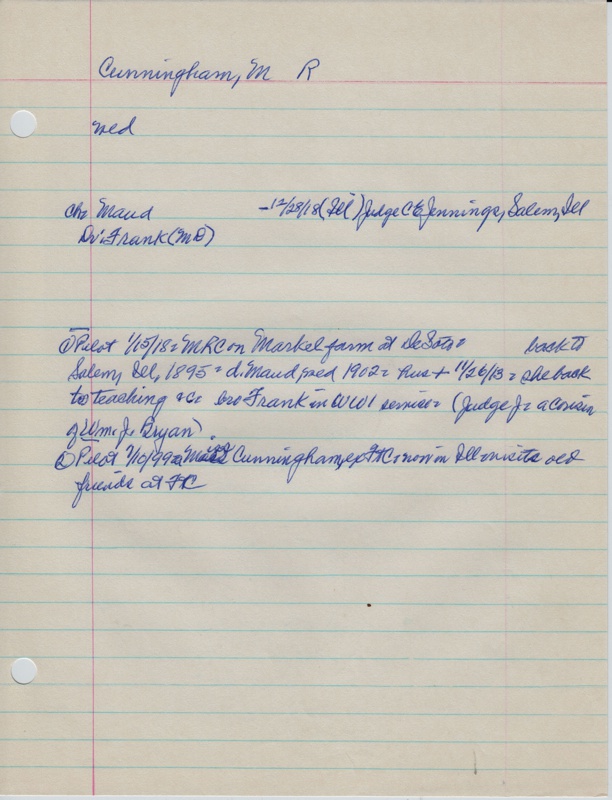 Cunningham, M R
wed
ch: Maud - 12/28/18 (Ill) Judge C E Jennings, Salem, Ill
Dr. Frank (MD)
① Pilot 1/15/18: MRC on Markel farm at DeSoto: back to
Salem, Ill, 1895 = d. Maud, wed 1902 = hus + 11/26/13 = she back
to teaching &c bro Frank in WW1 service = (Judge J = a cousin
of Wm. J. Bryan).
② Pilot 1/10/99 = Cunningham, ex FtC now in Ill visits old
friends at FtC